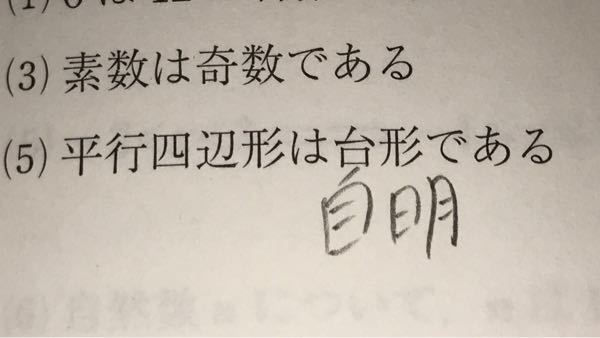 (3) 素数は奇数である
(5) 平行四辺形は台形である
自明